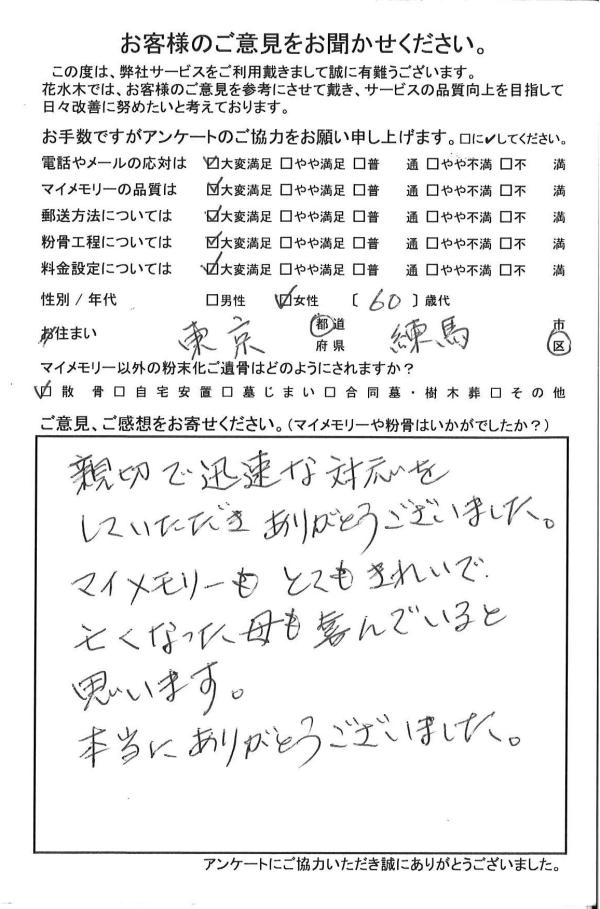 お客様のご意見をお聞かせください。
この度は、弊社サービスをご利用戴きまして誠に有難うございます。
花水木では、お客様のご意見を参考にさせて戴き、サービスの品質向上を目指して
日々改善に努めたいと考えております。
お手数ですがアンケートのご協力をお願い申し上げます。□に✔してください。
電話やメールの応対は ☑大変満足 □やや満足 □普 通 □やや不満 □不 満
マイメモリーの品質は ☑大変満足 □やや満足 □普 通 □やや不満 □不 満
郵送方法については ☑大変満足 □やや満足 □普 通 □やや不満 □不 満
粉骨工程については ☑大変満足 □やや満足 □普 通 □やや不満 □不 満
料金設定については ☑大変満足 □やや満足 □普 通 □やや不満 □不 満
性別 / 年代 □男性 ☑女性 〔 60 〕歳代
お住まい 東京 都道府県 練馬 市区
マイメモリー以外の粉末化ご遺骨はどのようにされますか?
☑散 骨 □自宅安置 □墓じまい □合同墓・樹木葬 □その他
ご意見、ご感想をお寄せください。(マイメモリーや粉骨はいかがでしたか?)
親切で迅速な対応を
していただきありがとうございました。
マイメモリーもとてもきれいで
亡くなった母も喜んでいると
思います。
本当にありがとうございました。
アンケートにご協力いただき誠にありがとうございました。